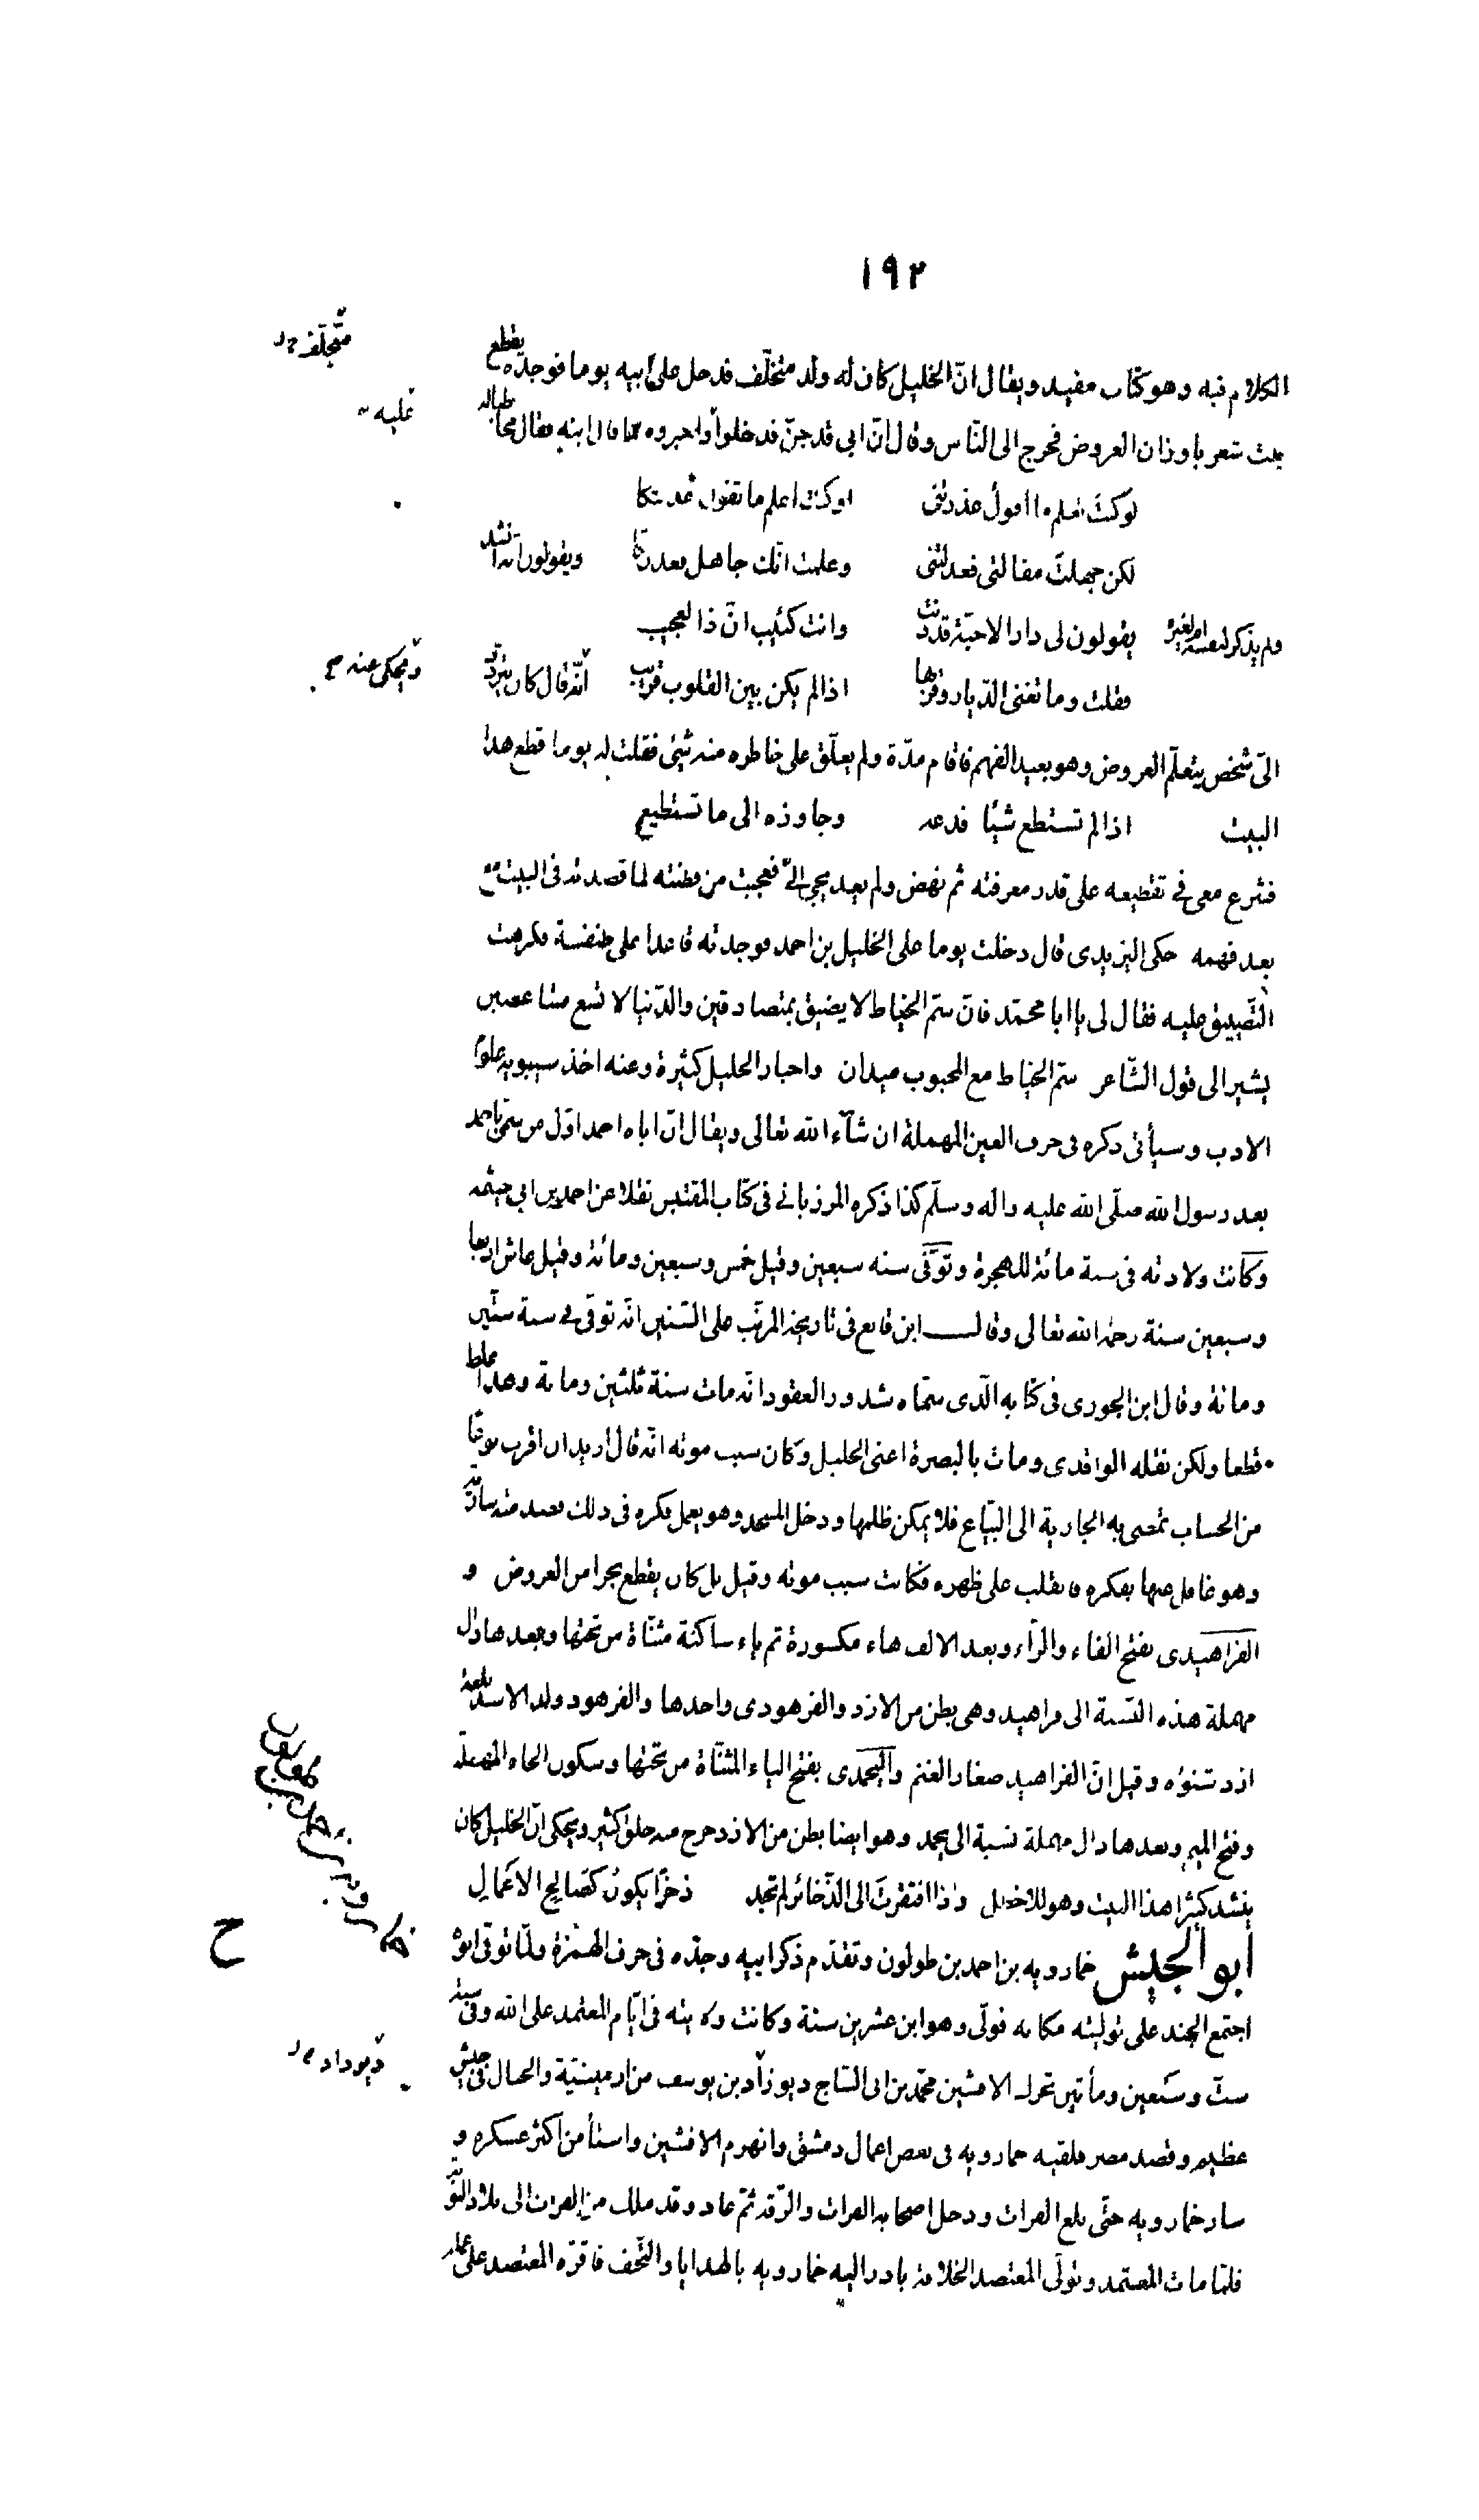 ١٩٢
الكلام فيه وهو كتاب مفيد ويقال انّ الخليل كان له ولد متخلّف فدخل على ابيه يوما فوجده يقطع
متخلّف
بيت شعر باوزان العروض فخرج الى النّاس وقال انّ ابي قد جنّ فدخلوا واخبروه بما قال ابنه فقال مخاطبا له
عليه
لو كنت تعلم ما اقول عذرتنى اوكنت اعلم ما تقول عذلتكا
لكن جهلت مقالتى فعذلتنى وعلمت انّك جاهل فعذرتكا ويقولون انه انشد
ولم يذكر لنفسه ام لغيره يقولون لى دار الاحبّة قد دنت وانت كئيب انّ ذا لعجيب
فقلت وما تغنى الدّيار وقربها اذا لم يكن بين القلوب قريب انّه قال كان يتردّد
ويحكى عنه صح
الىّ شخص يتعلّم العروض وهو بعيد الفهم فاقام مدّة ولم يعلّق على خاطره منه شئ فقلت له يوما قطع هذا
البيت اذا لم تستطع شيئا فدعه وجاوزه الى ما تستطيع
فشرع معى فى تقطيعه على قدر معرفته ثم نهض ولم يعد يجئ الىّ فعجبت من فطنته لما قصدته فى البيت مع
بعد فهمه حكى اليزيدى قال دخلت يوما على الخليل بن احمد فوجدته قاعدا على طنفسة فكرهت
التّضييق عليه فقال لى يا ابا محمّد فانّ سمّ الخياط لا يضيق بمتصادقين والدّنيا لا تسع متباغضين
يشير الى قول الشّاعر سمّ الخياط مع المحبوب ميدان واخبار الخليل كثيرة وعنه اخذ سيبويه علوم
الادب وسيأتى ذكره فى حرف العين المهملة ان شآء الله تعالى ويقال انّ اباه احمد اوّل من سمّى باحمد
بعد رسول الله صلّى الله عليه واله وسلّم كذا ذكره المرزبانى فى كتاب المقتبس نقلا عن احمد بن ابى خيثمه
وكانت ولادته فى سنة مائة للهجرة وتوفّى سنه سبعين وقيل خمس وسبعين ومائة وقيل عاش اربعا
وسبعين سنة رحمه الله تعالى وقال ابن قانع فى تاريخه المرتّب على السّنين انّه توفّى فى سنة ستّين
ومائة وقال ابن الجوزى فى كتابه الّذى سمّاه شذور العقود انّه مات سنة ثلثين ومائة وهذا غلط
قطعا ولكن نقله الواقدى ومات بالبصرة اعنى الخليل وكان سبب موته انّه قال اريد ان اقرب نوعا
من الحساب تمضى به الجارية الى البيّاع فلا يمكن ظلمها ودخل المسجد وهو يعمل فكره فى ذلك فصدمته سارية
وهو غافل عنها بفكره فانقلب على ظهره فكانت سبب موته وقيل بل كان يقطع بحرا من العروض و
الفراهيدى بفتح الفاء والرآء وبعد الالف هاء مكسورة ثم ياء ساكنة مثنّاة من تحتها وبعدها دال
مهملة هذه النّسبة الى فراهيد وهى بطن من الازد والفرهودى واحدها والفرهود ولد الاسد بلغة
ازد شنوءه وقيل انّ الفراهيد صغار الغنم واليحمدى بفتح الياء المثنّاة من تحتها وسكون الحاء المهملة
وفتح الميم وبعدها دال مهملة نسبة الى يحمد وهو ايضا بطن من الازد خرج منه خلق كثير ويحكى انّ الخليل كان
ينشد كثيرا هذا البيت وهو للاخطل واذا افتقرت الى الذّخائر لم تجد ذخرا يكون كصالح الاعمال
أبو الجيش خمارويه بن احمد بن طولون وتقدّم ذكر ابيه وجدّه فى حرف الهمزة ولمّا توفّى ابوه
ح
اجتمع الجند على توليته مكانه فولّى وهو ابن عشرين سنة وكانت ولايته فى ايّام المعتمد على الله وفى سنة
ستّ وسبعين ومأتين تحرّك الافشين محمّد بن ابى السّاج ديوزاد بن يوسف من ارمينيّة والجبال فى جيش
ديوداد
عظيم وقصد مصر فلقيه خمارويه فى بعض اعمال دمشق وانهزم الافشين واستأمن اكثر عسكره و
سار خمارويه حتّى بلغ الفرات ودخل اصحابه الفرات والرّقه ثمّ عاد وقد ملك من الفرات الى بلاد النوبة
فلمّا مات المعتمد وتولّى المعتضد الخلافة بادر اليه خمارويه بالهدايا والتّحف فاقرّه المعتضد على عمله